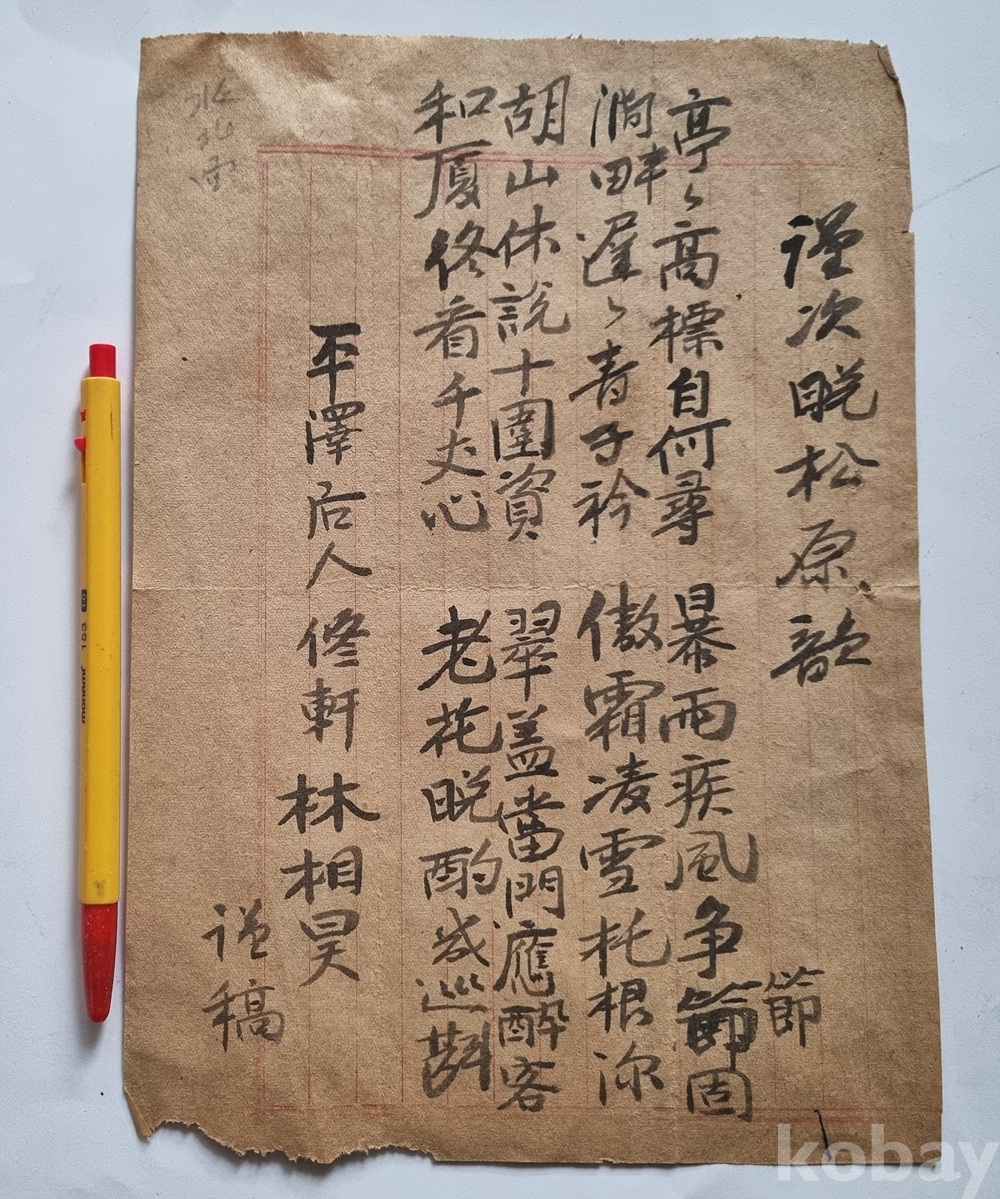 謹次晩松原韻
亭々高標自何尋 暴雨疾風争節固
節
澗畔遲々青子衿 傲霜凌雪托根深
胡山休說十圍資 翠盖當門應醉客
和厦終看千丈心 老花晩酌或巡斟
平澤后人軒林相昊
謹稿
monami 153
kobay